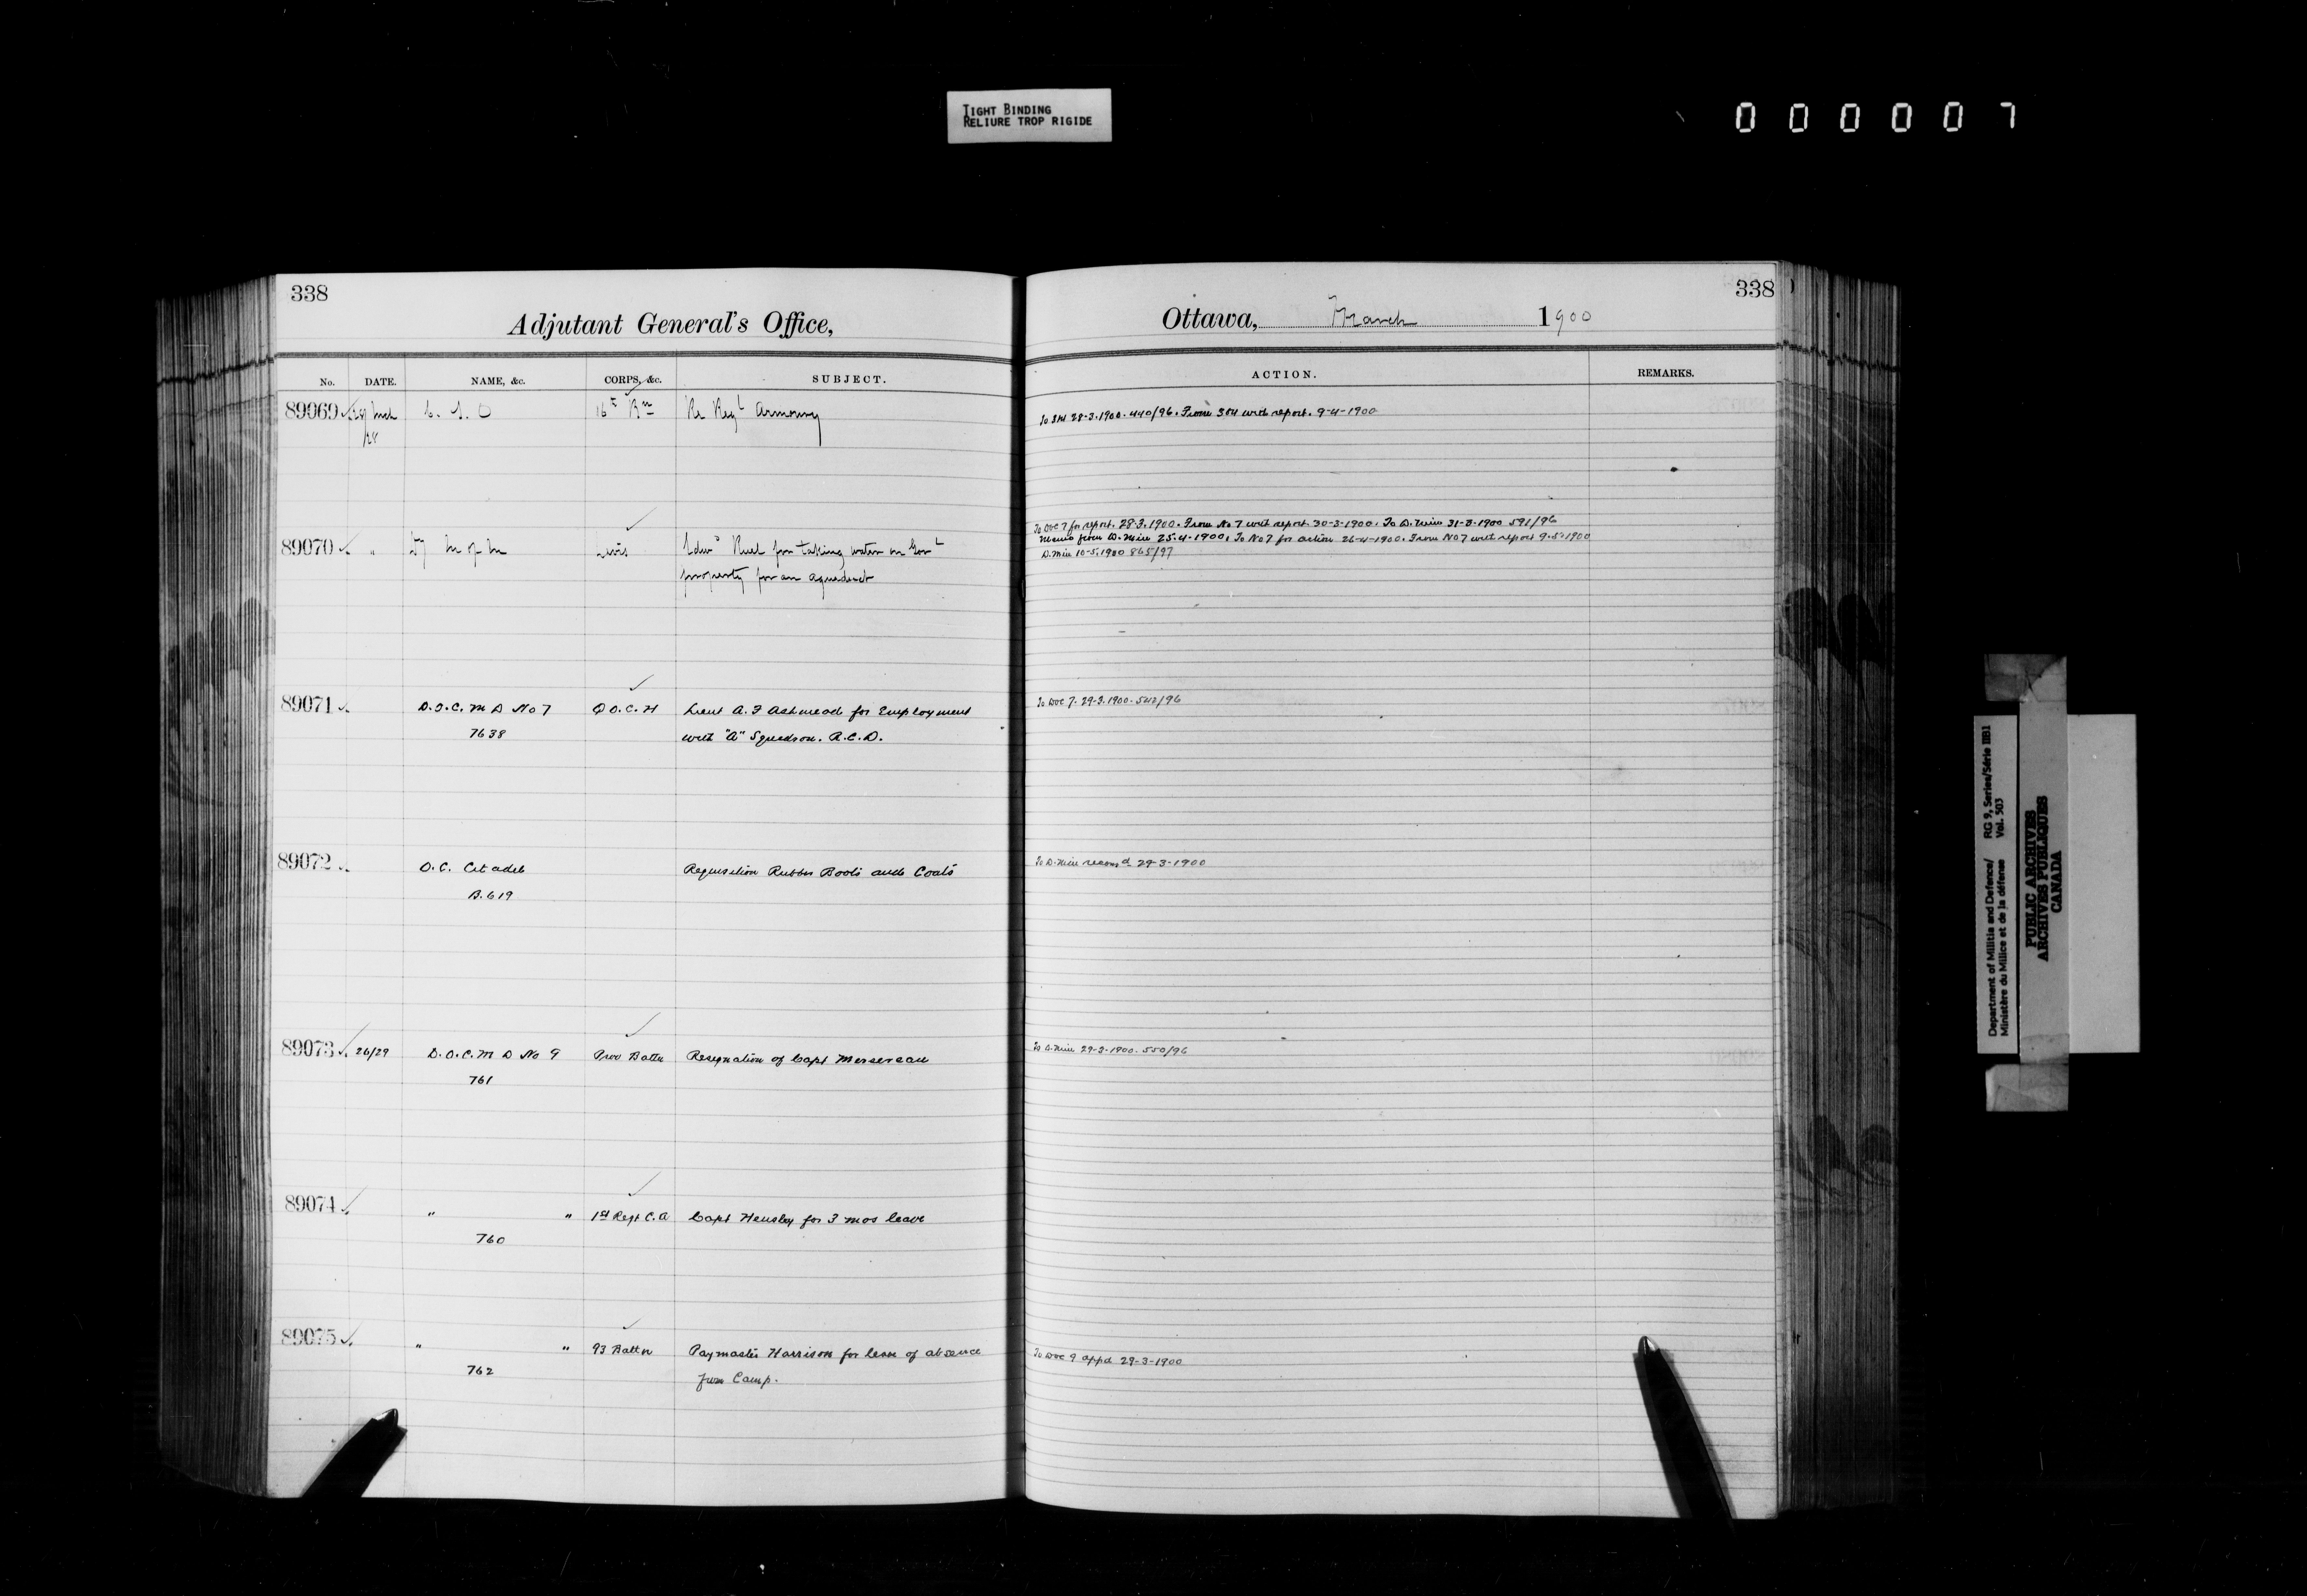 TIGHT BINDING
RELIURE TROP RIGIDE
000007
338
Adjutant General's Office,
338
Ottawa, March 1900
No. DATE. NAME, &c. CORPS, &c. SUBJECT.
ACTION. REMARKS.
89069 28 C. S. O 16th Bn Re Regtl Armoury
To 3 & 4 28-3-1900. 440/96. From 3 & 4 with report. 9-4-1900
89070 " Dy M of M Levis Edwd Ruel for taking water on Govt
property for an aqueduct
To DOC 7 for report. 28-3-1900. From No 7 with report 30-3-1900. To D. Min 31-3-1900 591/96
Memo from D. Min 25-4-1900. To No 7 for action 26-4-1900. From No 7 with report 9-5-1900
D. Min 10-5-1900 865/97
89071 D.O.C. M D No 7 Q O. C. H Lieut A. F Ashmead for Employment
7638 with "A" Squadron. R.C.D.
To DOC 7. 29-3-1900.
89072 O.C. Citadel Requisition Rubber Boots and Coats
B. 619
To D. Min recomd 29-3-1900
89073 26/29 D.O.C. M D No 9 Prov Battn Resignation of Capt Mersereau
761
To D. Min 29-3-1900. 550/96
89074 " " 1st Regt C.A Capt Hensley for 3 mos leave
760
89075 " " 93 Battn Paymaster Harrison for leave of absence
762 from Camp.
To DOC 9 appd 29-3-1900
Department of Militia and Defence/ RG 9, Series/Série IIB1
Ministère du Milice et de la défense Vol. 503
PUBLIC ARCHIVES
ARCHIVES PUBLIQUES
CANADA